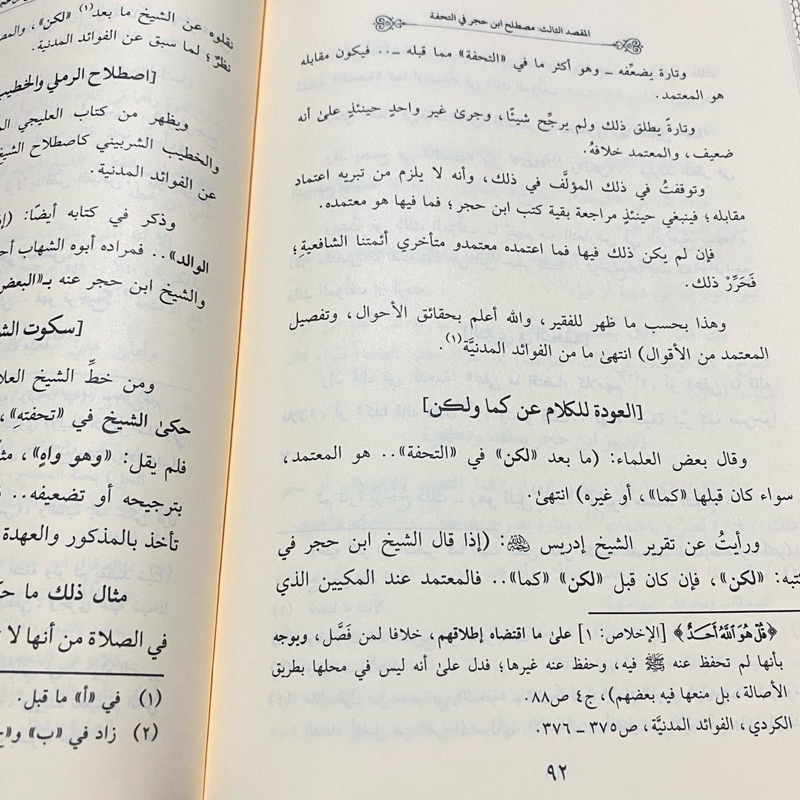 المقصد الثالث: مصطلح ابن حجر في التحفة
وتارة يضعِّفه ــ وهو أكثر ما في «التحفة» مما قبله ــ.. فيكون مقابله
هو المعتمد.
وتارةً يطلق ذلك ولم يرجِّح شيئًا، وجرىٰ غير واحدٍ حينئذٍ علىٰ أنه
ضعيف، والمعتمد خلافهُ.
وتوقفتُ في ذلك المؤلَّف في ذلك، وأنه لا يلزم من تبريه اعتماد
مقابله؛ فينبغي حينئذٍ مراجعة بقية كتب ابن حجر؛ فما فيها هو معتمده.
فإن لم يكن ذلك فيها فما اعتمده معتمدو متأخري أئمتنا الشافعيةِ؛
فَحَرِّرْ ذلك.
وهذا بحسب ما ظهر للفقير، والله أعلم بحقائق الأحوال، وتفصيل
المعتمد من الأقوال) انتهىٰ ما من الفوائد المدنيَّة(١).
[العودة للكلام عن كما ولكن]
وقال بعض العلماء: (ما بعد «لكن» في «التحفة».. هو المعتمد،
سواء كان قبلها «كما»، أو غيره) انتهىٰ.
ورأيتُ عن تقرير الشيخ إدريس ﷺ: (إذا قال الشيخ ابن حجر في
كتبه: «لكن»، فإن كان قبل «لكن» «كما».. فالمعتمد عند المكيين الذي
﴿قُلْ هُوَ ٱللَّهُ أَحَدٌ﴾ [الإخلاص: ١] علىٰ ما اقتضاه إطلاقهم، خلافا لمن فَصَّل، ويوجه
بأنها لم تحفظ عنه ﷺ فيه، وحفظ عنه غيرها؛ فدل علىٰ أنه ليس في محلها بطريق
الأصالة، بل منعها فيه بعضهم)، ج٤ ص٨٨.
الكردي، الفوائد المدنيَّة، ص٣٧٥ ــ ٣٧٦.
٩٢
نقلوه عن الشيخ ما بعد(١) «لكن»، والمعـ
نظرٌ؛ لما سبق عن الفوائد المدنية.
[اصطلاح الرملي والخطيب
ويظهر من كتاب العليجي
والخطيب الشربيني كاصطلاح الشيخ
عن الفوائد المدنية.
وذكر في كتابه أيضًا: (إذ
الوالد».. فمراده أبوه الشهاب
والشيخ ابن حجر عنه بـ«البعض
[سكوت
ومن خطِّ الشيخ
حكىٰ الشيخ في «تحفتهِ»،
فلم يقل: «وهو واهٍ»،
بترجيحه أو تضعيفه..
تأخذ بالمذكور والعهدة
مثال ذلك ما
في الصلاة من أنها لا
(١) في «أ» ما قبل.
(٢) زاد في «ب»